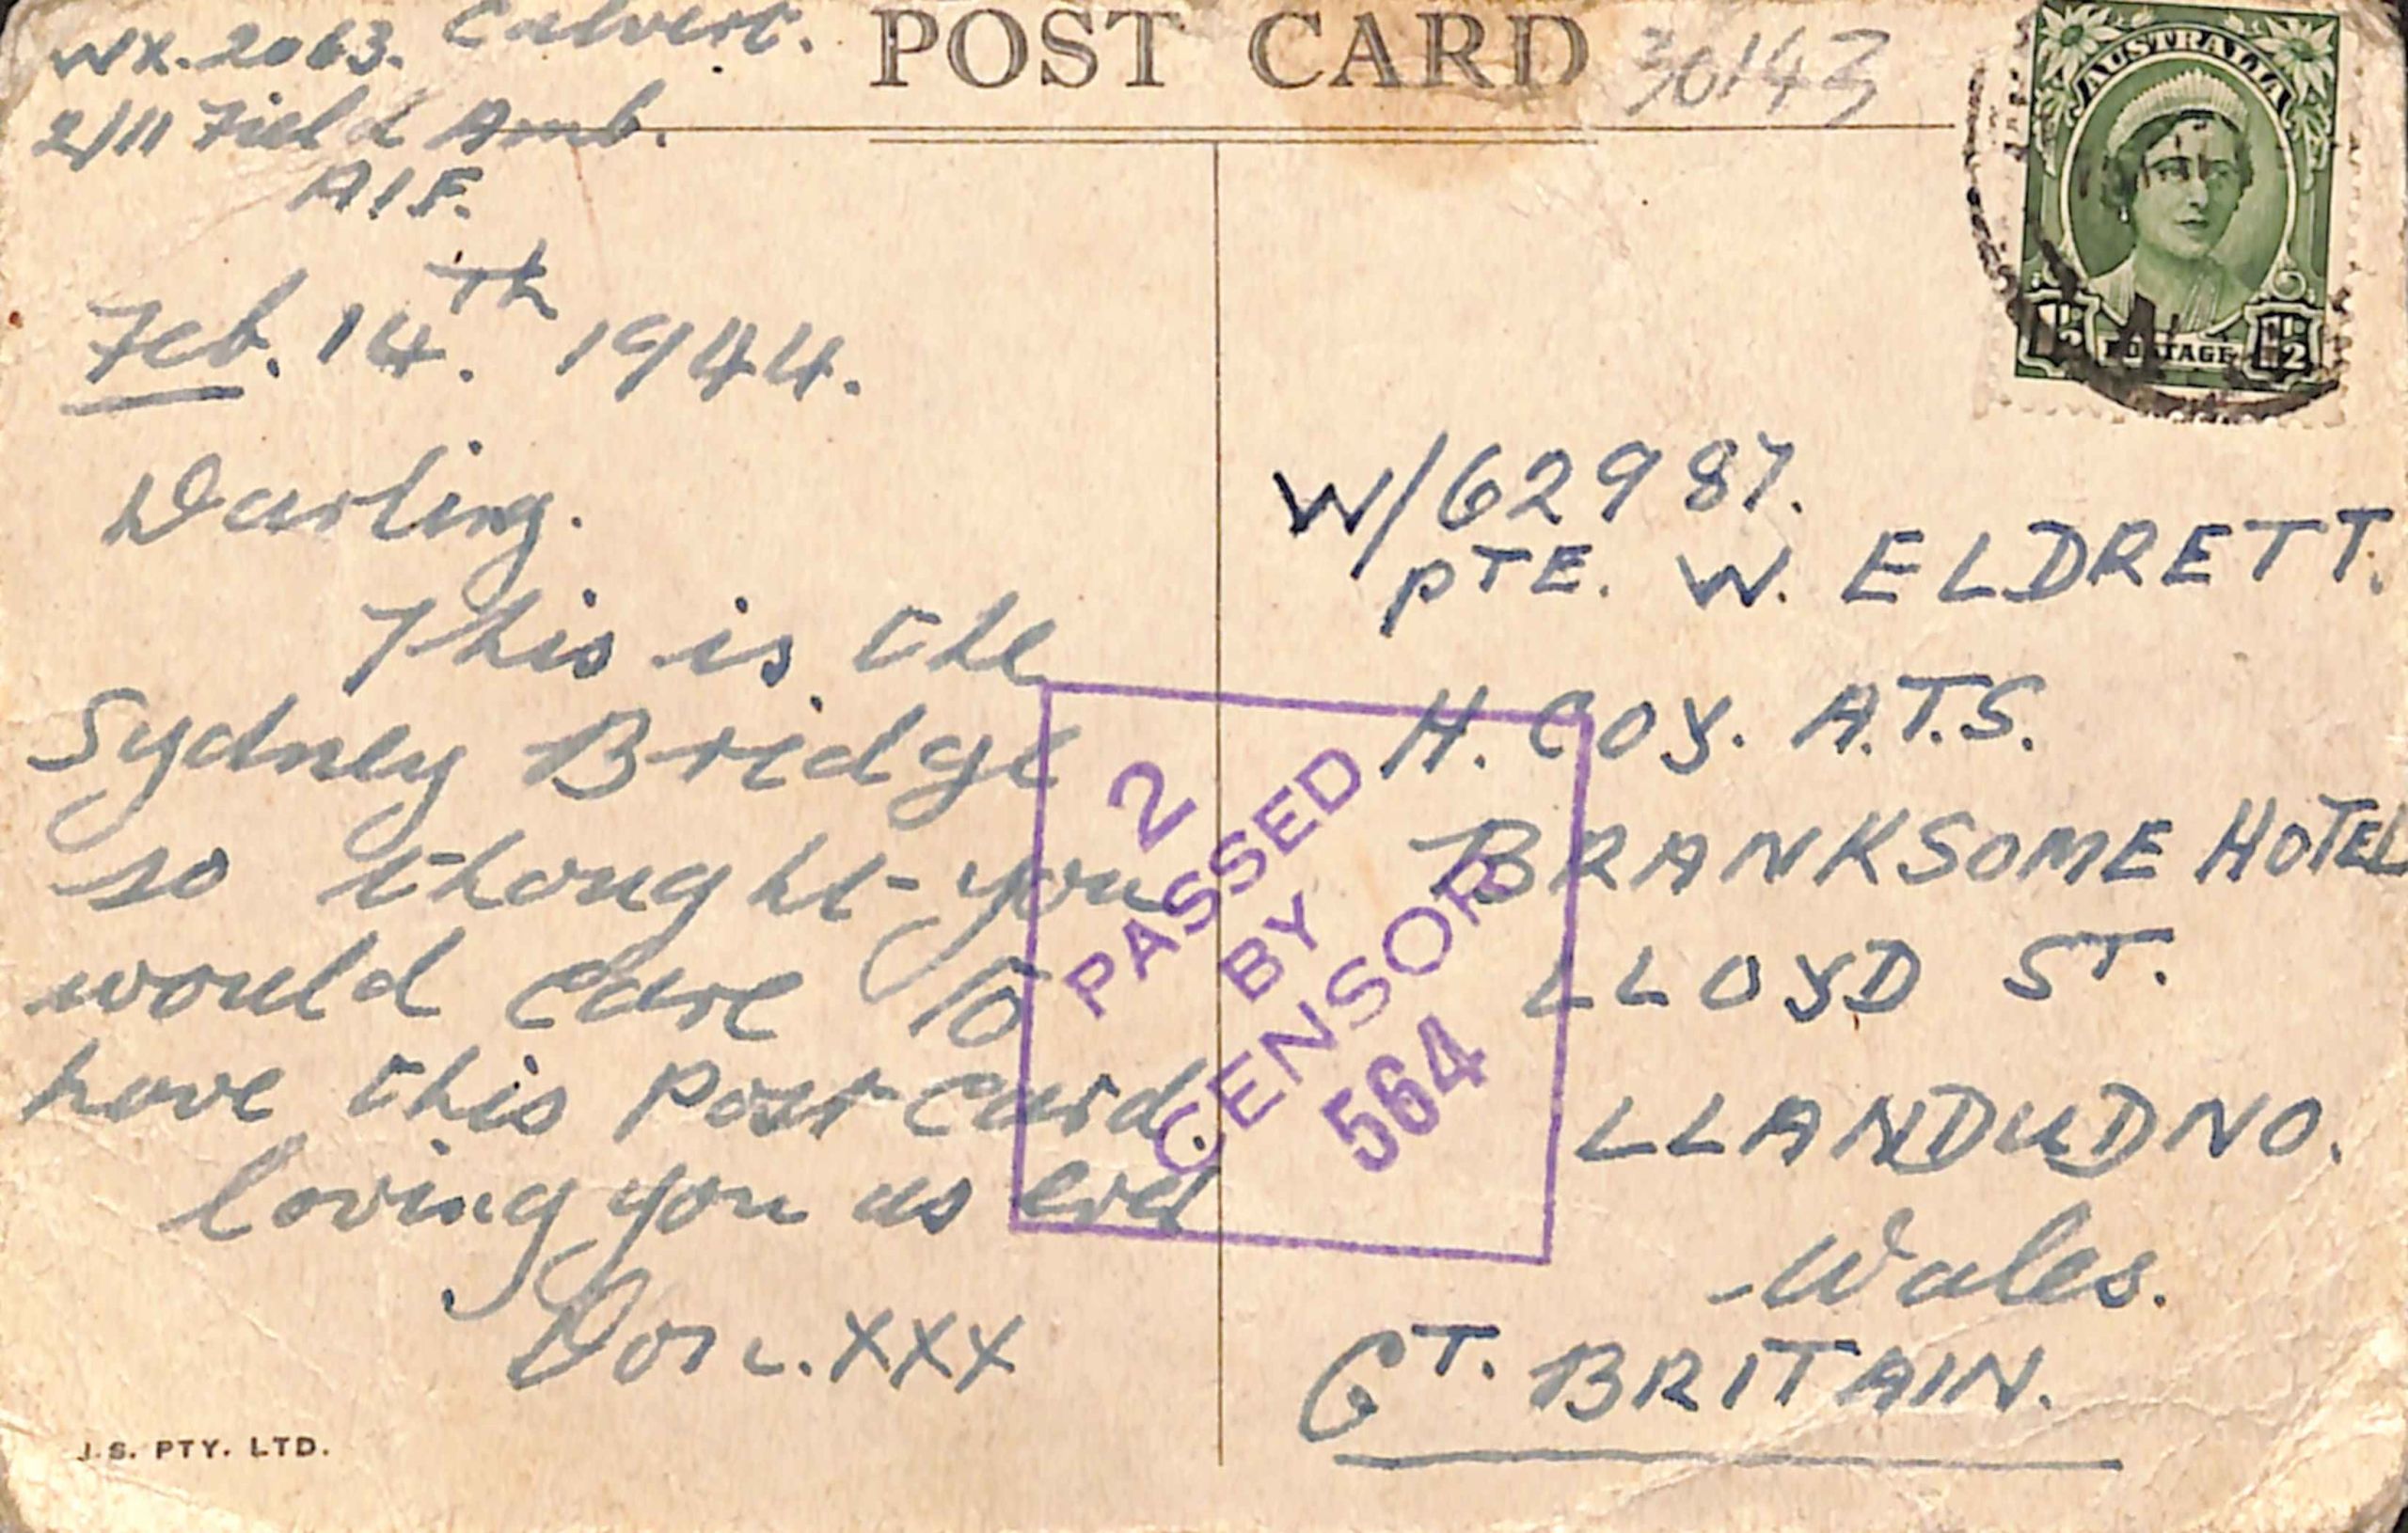 POST CARD
30143
WX. 2063. Calvert.
2/11 Field Amb.
A.I.F.
Feb. 14.Th 1944.
Darling.
This is the
Sydney Bridge
so thought you
would care to
have this Post Card.
loving you as ever
Don. XXX
J.S. PTY. LTD.
AUSTRALIA
1½ POSTAGE 1½
W/62987.
PTE. W. ELDRETT.
H. COY. A.T.S.
BRANKSOME HOTEL
LLOYD ST.
LLANDUDNO.
Wales.
GT. BRITAIN.
2
PASSED
BY
CENSOR
564